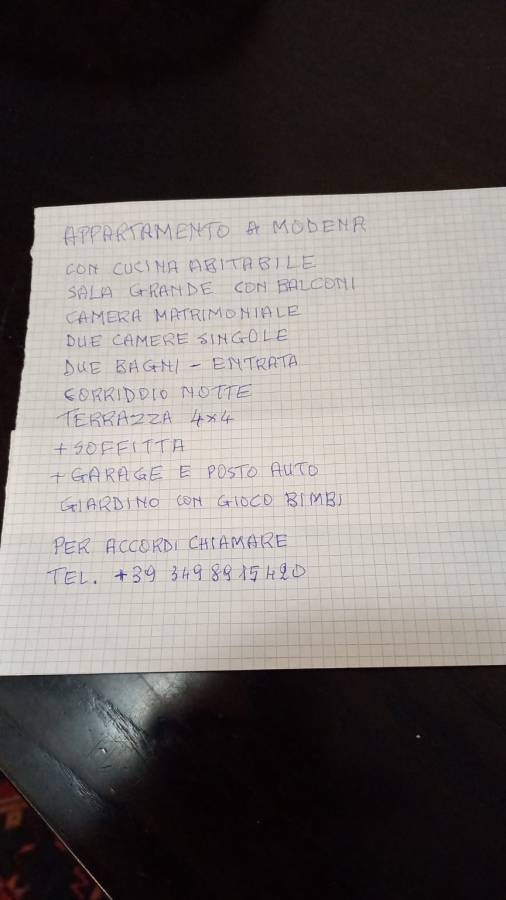 APPARTAMENTO A MODENA
CON CUCINA ABITABILE
SALA GRANDE CON BALCONI
CAMERA MATRIMONIALE
DUE CAMERE SINGOLE
DUE BAGNI - ENTRATA
CORRIDOIO NOTTE
TERRAZZA 4x4
+ SOFFITTA
+ GARAGE E POSTO AUTO
GIARDINO CON GIOCO BIMBI
PER ACCORDI CHIAMARE
TEL. +39 349 8915420